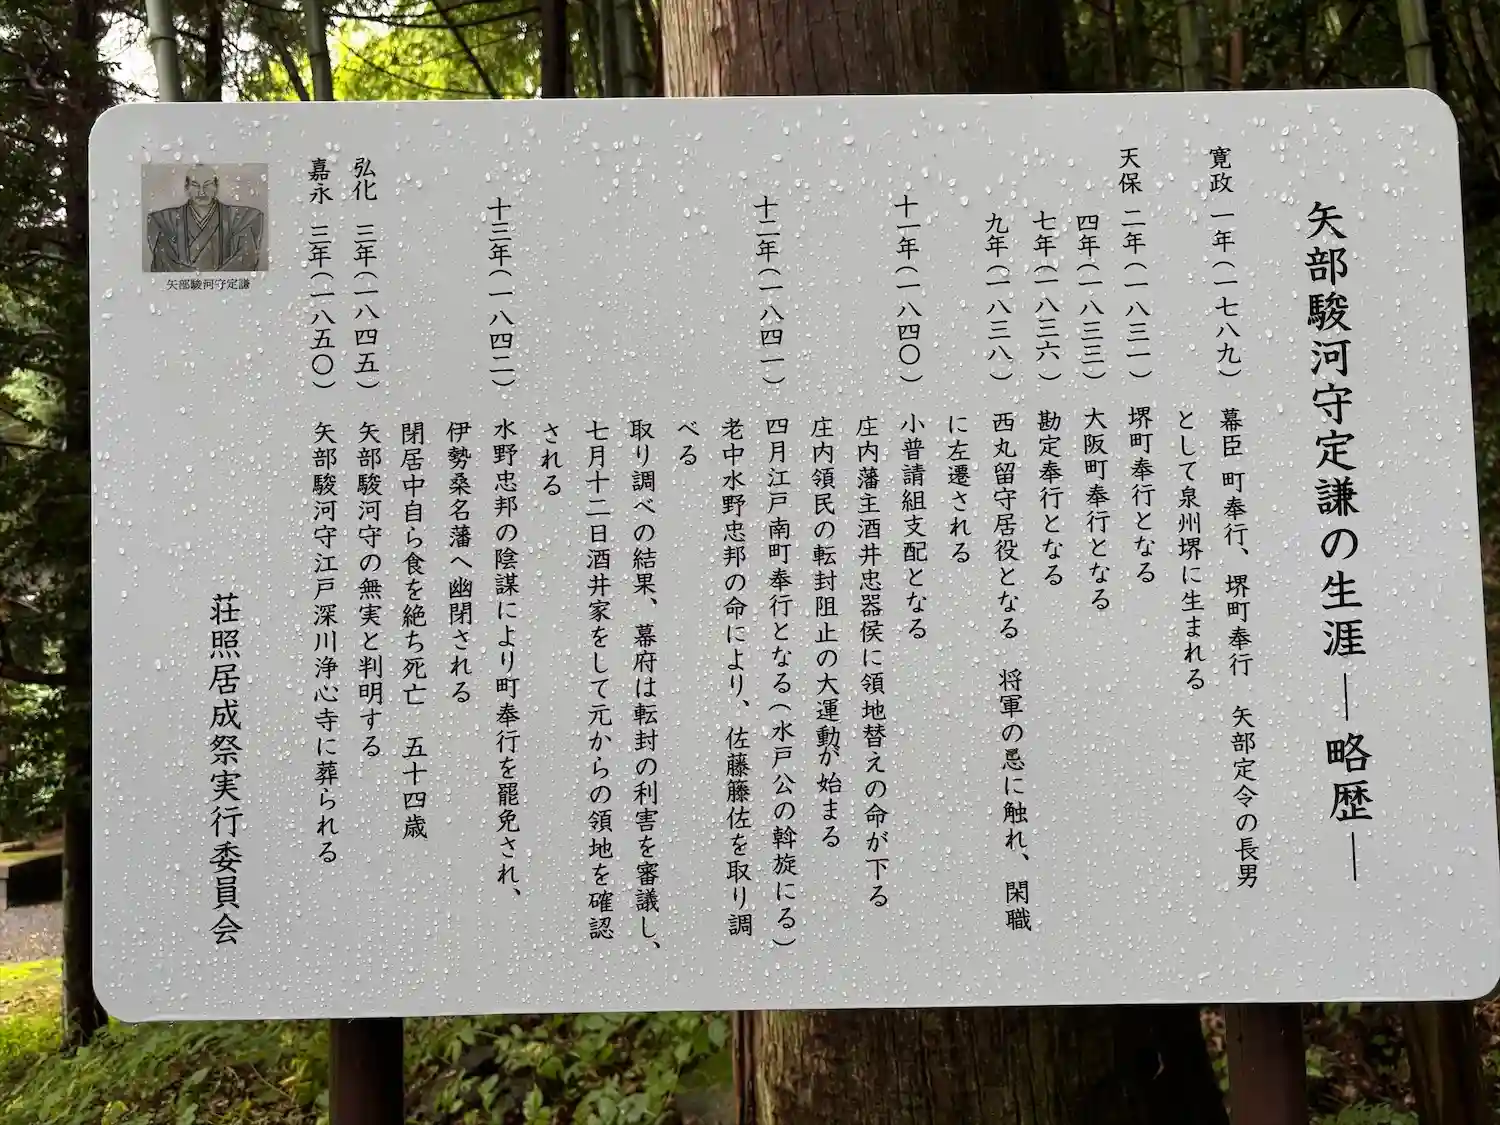 矢部駿河守定謙の生涯―略歴―
寛政 一年(一七八九) 幕臣 町奉行、堺町奉行 矢部定令の長男
として泉州堺に生まれる
天保 二年(一八三一) 堺町奉行となる
四年(一八三三) 大阪町奉行となる
七年(一八三六) 勘定奉行となる
九年(一八三八) 西丸留守居役となる 将軍の忌に触れ、閑職
に左遷される
十一年(一八四〇) 小普請組支配となる
庄内藩主酒井忠器侯に領地替えの命が下る
庄内領民の転封阻止の大運動が始まる
十二年(一八四一) 四月江戸南町奉行となる(水戸公の斡旋にる)
老中水野忠邦の命により、佐藤籐佐を取り調
べる
取り調べの結果、幕府は転封の利害を審議し、
七月十二日酒井家をして元からの領地を確認
される
十三年(一八四二) 水野忠邦の陰謀により町奉行を罷免され、
伊勢桑名藩へ幽閉される
閉居中自ら食を絶ち死亡 五十四歳
弘化 三年(一八四五) 矢部駿河守の無実と判明する
嘉永 三年(一八五〇) 矢部駿河守江戸深川浄心寺に葬られる
荘照居成祭実行委員会
矢部駿河守定謙